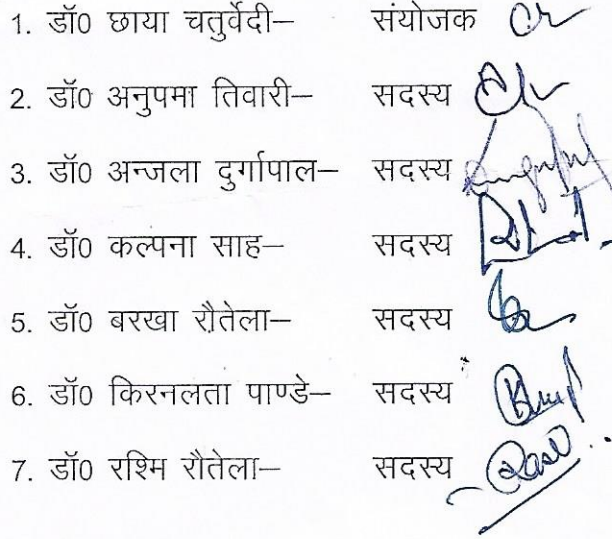 1. डॉ0 छाया चतुर्वेदी– संयोजक
2. डॉ0 अनुपमा तिवारी– सदस्य
3. डॉ0 अन्जला दुर्गापाल– सदस्य
4. डॉ0 कल्पना साह– सदस्य
5. डॉ0 बरखा रौतेला– सदस्य
6. डॉ0 किरनलता पाण्डे– सदस्य
7. डॉ0 रश्मि रौतेला– सदस्य